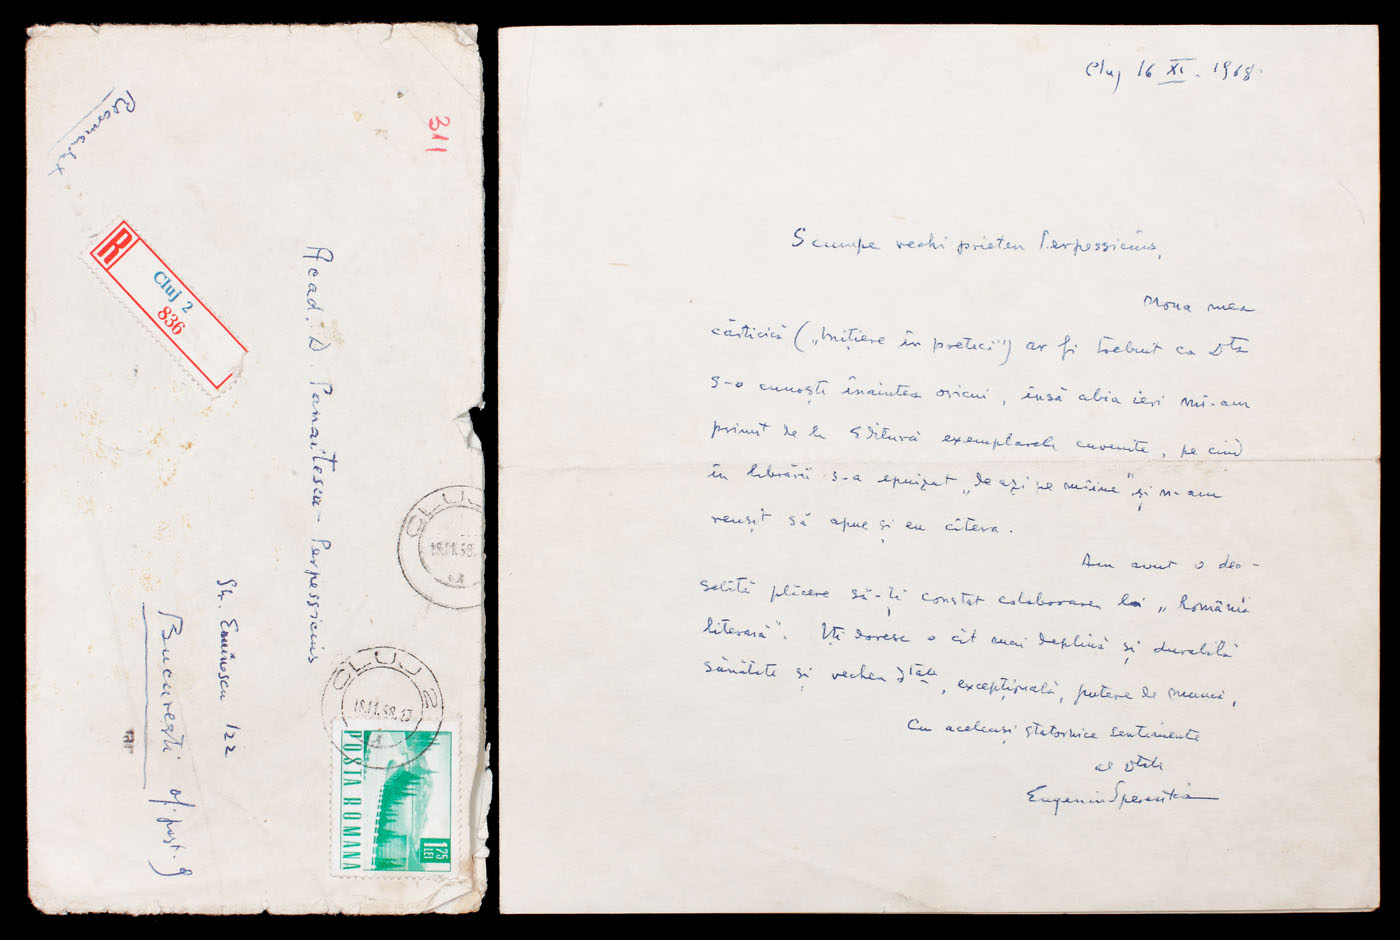 Recomandat
311
R
Cluj 2
836
Acad. D. Panaitescu - Perpessicius
Str. Eminescu 122
București of. post. 9
CLUJ
18.11.68.
CLUJ 2
18.11.68.
POSTA ROMANA
1,75
LEI
Cluj 16 XI. 1968.
Scumpe vechi prieten Perpessicius,
Noua mea
cărticică („Inițiere în poetică") ar fi trebuit ca Dta
s-o cunoști înaintea oricui, însă abia ieri mi-am
primit de la Editură exemplarele cuvenite, pe cînd
în librării s-a epuizat „de azi pe mîine" și n-am
reușit să apuc și eu cîteva.
Am avut o deo-
sebită plăcere să-ți constat colaborarea la „România
literară". Îți doresc o cît mai deplină și durabilă
sănătate și vechea Dtale, excepțională, putere de muncă,
Cu aceleași statornice sentimente
al Dtale
Eugeniu Sperantia